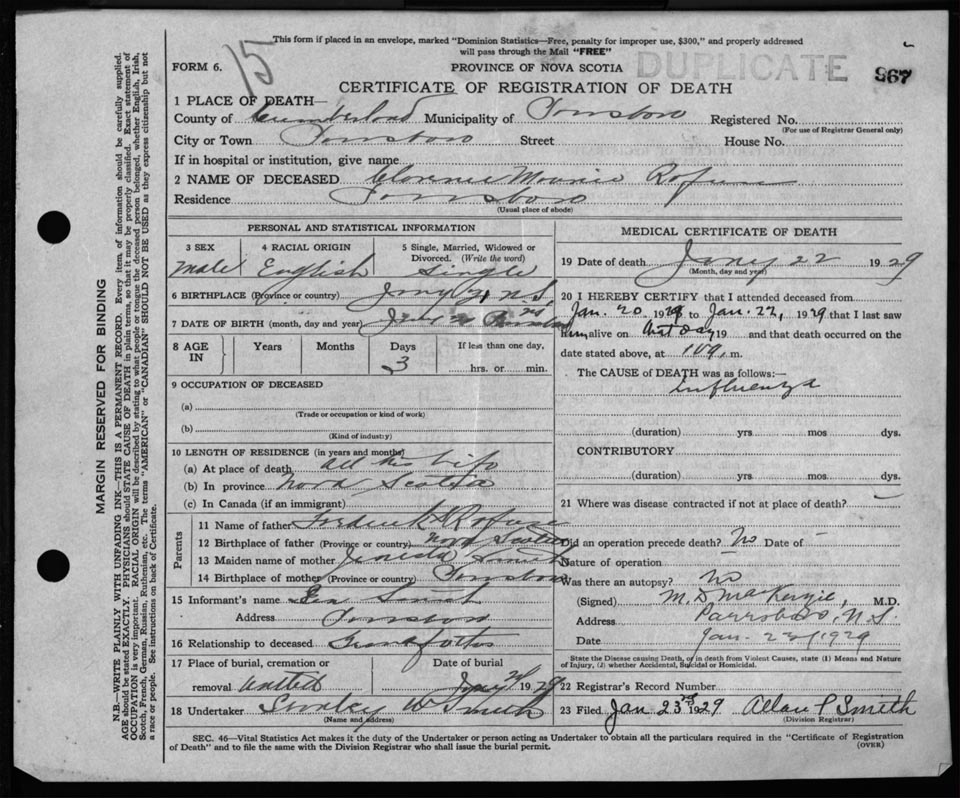 This form if placed in an envelope, marked "Dominion Statistics—Free, penalty for improper use, $300," and properly addressed
will pass through the Mail "FREE"
15
FORM 6.
PROVINCE OF NOVA SCOTIA
DUPLICATE
967
CERTIFICATE OF REGISTRATION OF DEATH
1 PLACE OF DEATH—
County of Cumberland Municipality of Parrsboro Registered No.
(For use of Registrar General only)
City or Town Parrsboro Street House No.
If in hospital or institution, give name
2 NAME OF DECEASED Clarence
Residence Parrsboro
(Usual place of abode)
PERSONAL AND STATISTICAL INFORMATION
3 SEX 4 RACIAL ORIGIN 5 Single, Married, Widowed or Divorced. (Write the word)
Male English Single
6 BIRTHPLACE (Province or country) N.S.
7 DATE OF BIRTH (month, day and year)
8 AGE IN Years Months Days If less than one day,
3 hrs. or min.
9 OCCUPATION OF DECEASED
(a)
(Trade or occupation or kind of work)
(b)
(Kind of industry)
10 LENGTH OF RESIDENCE (in years and months)
(a) At place of death all his life
(b) In province Nova Scotia
(c) In Canada (if an immigrant)
Parents
11 Name of father
12 Birthplace of father (Province or country) Nova Scotia
13 Maiden name of mother Smith
14 Birthplace of mother (Province or country) Parrsboro
15 Informant's name Smith
Address Parrsboro
16 Relationship to deceased Grandfather
17 Place of burial, cremation or removal Date of burial
1929
18 Undertaker Stanley W Smith
(Name and address)
MEDICAL CERTIFICATE OF DEATH
19 Date of death Jany 22 1929
(Month, day and year)
20 I HEREBY CERTIFY that I attended deceased from
Jan. 20 1929 to Jan. 22, 1929 that I last saw
him alive on 19 and that death occurred on the
date stated above, at m.
The CAUSE of DEATH was as follows:—
Influenza
(duration) yrs. mos. dys.
CONTRIBUTORY
(duration) yrs. mos. dys.
21 Where was disease contracted if not at place of death?
Did an operation precede death? No Date of
Nature of operation
Was there an autopsy? No
(Signed) M. D. MacKenzie, M.D.
Address Parrsboro, N.S.
Date Jan. 23/1929
State the Disease causing Death, or in death from Violent Causes, state (1) Means and Nature
of Injury, (2) whether Accidental, Suicidal or Homicidal.
22 Registrar's Record Number
23 Filed Jan 23rd 1929 Allan P Smith
(Division Registrar)
SEC. 46—Vital Statistics Act makes it the duty of the Undertaker or person acting as Undertaker to obtain all the particulars required in the "Certificate of Registration
of Death" and to file the same with the Division Registrar who shall issue the burial permit.
(OVER)
MARGIN RESERVED FOR BINDING
N.B.—WRITE PLAINLY, WITH UNFADING INK—THIS IS A PERMANENT RECORD. Every item of information should be carefully supplied.
AGE should be stated EXACTLY. PHYSICIANS should STATE CAUSE OF DEATH in plain terms, so that it may be properly classified. Exact statement of
OCCUPATION is very important. RACIAL ORIGIN will be described by stating to what people or tongue the deceased person belonged, whether English, Irish,
Scotch, French, German, Russian, Ruthenian, etc. The terms "AMERICAN" or "CANADIAN" SHOULD NOT BE USED as they express citizenship but not
a race or people. See instructions on back of Certificate.